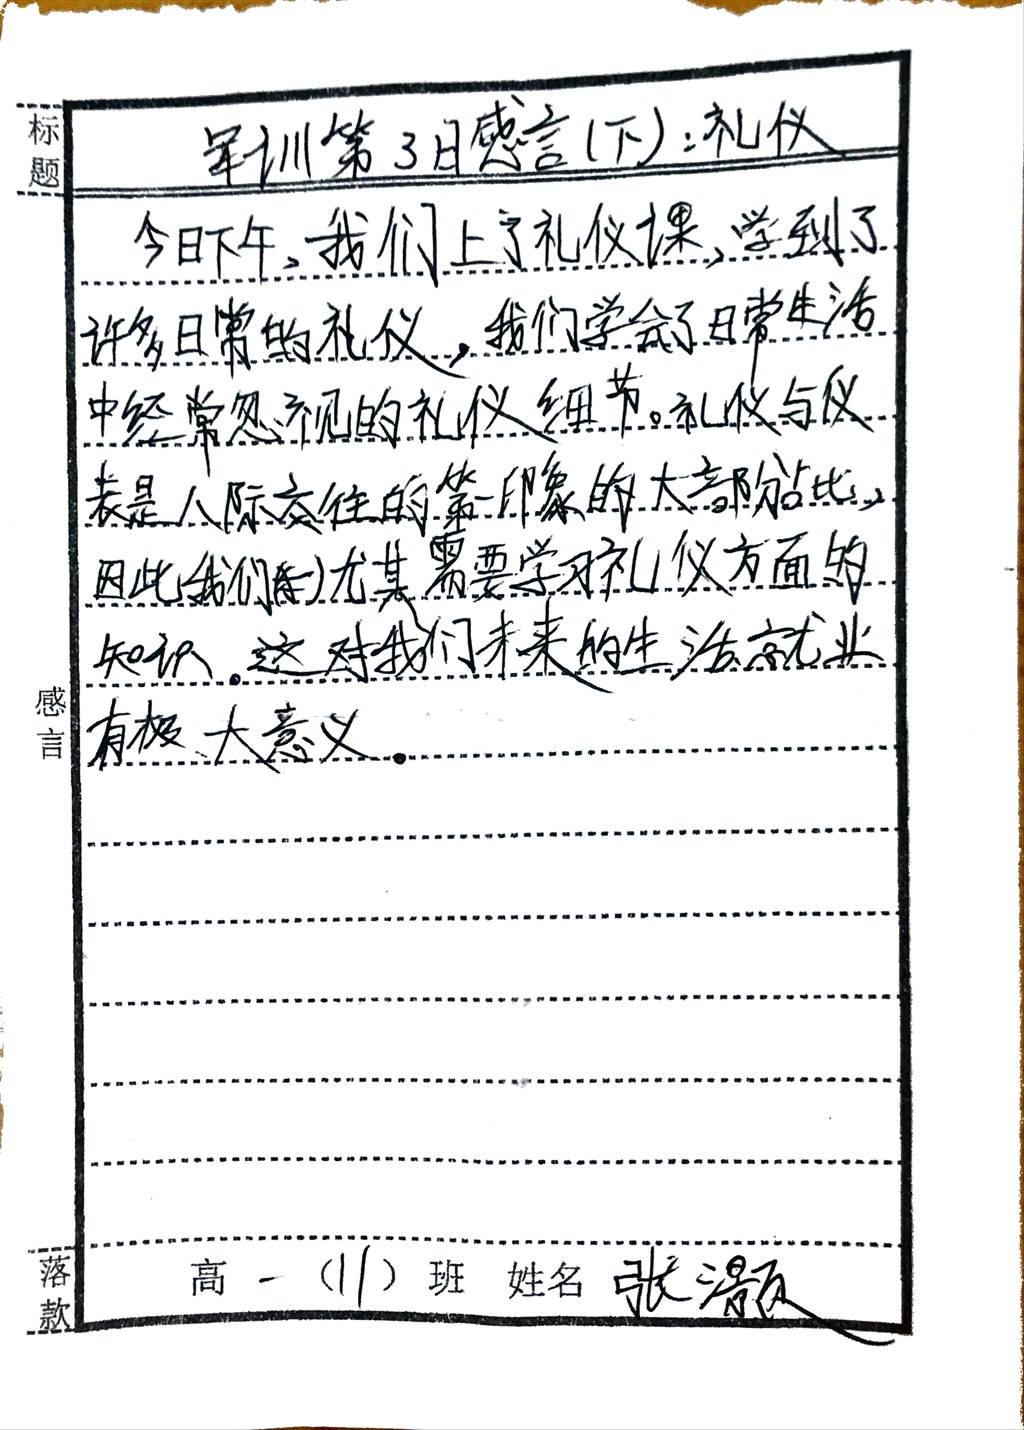 标题
军训第3日感言(下):礼仪
今日下午,我们上了礼仪课,学到了
许多日常的礼仪,我们学会了日常生活
中经常忽视的礼仪细节。礼仪与仪
表是人际交往的第一印象的大部分占比,
因此我们尤其需要学习礼仪方面的
知识。这对我们未来的生活就业
有极大意义。
感言
落款
高一(11)班 姓名 张灏